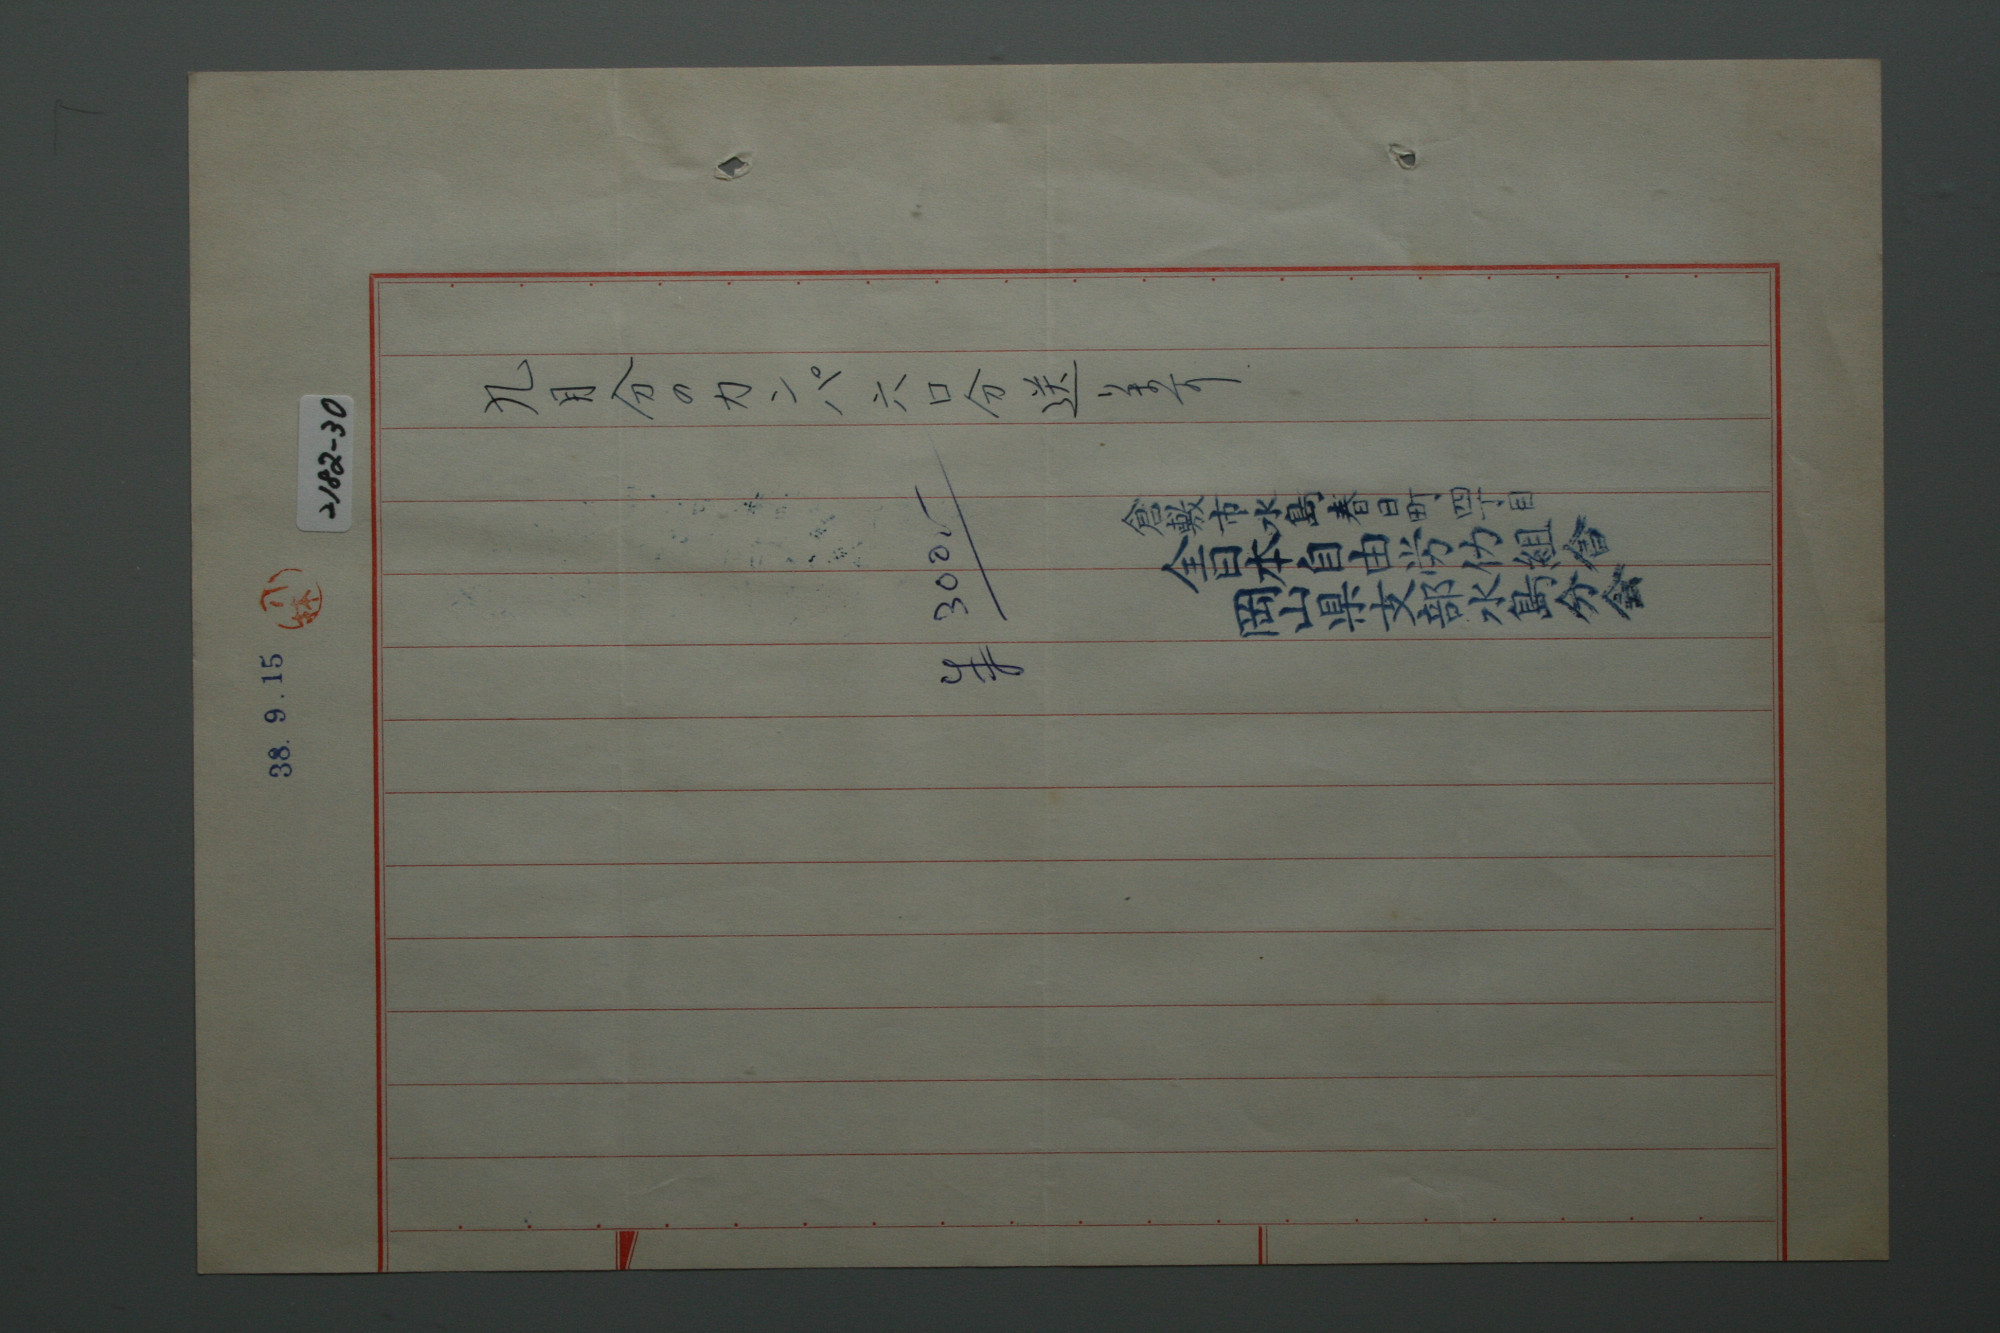 九月分のカンパ六口分送ります
¥300
倉敷市水島春日町四丁目
全日本自由労仂組合
岡山県支部水島分会
2182-30
38.9.15